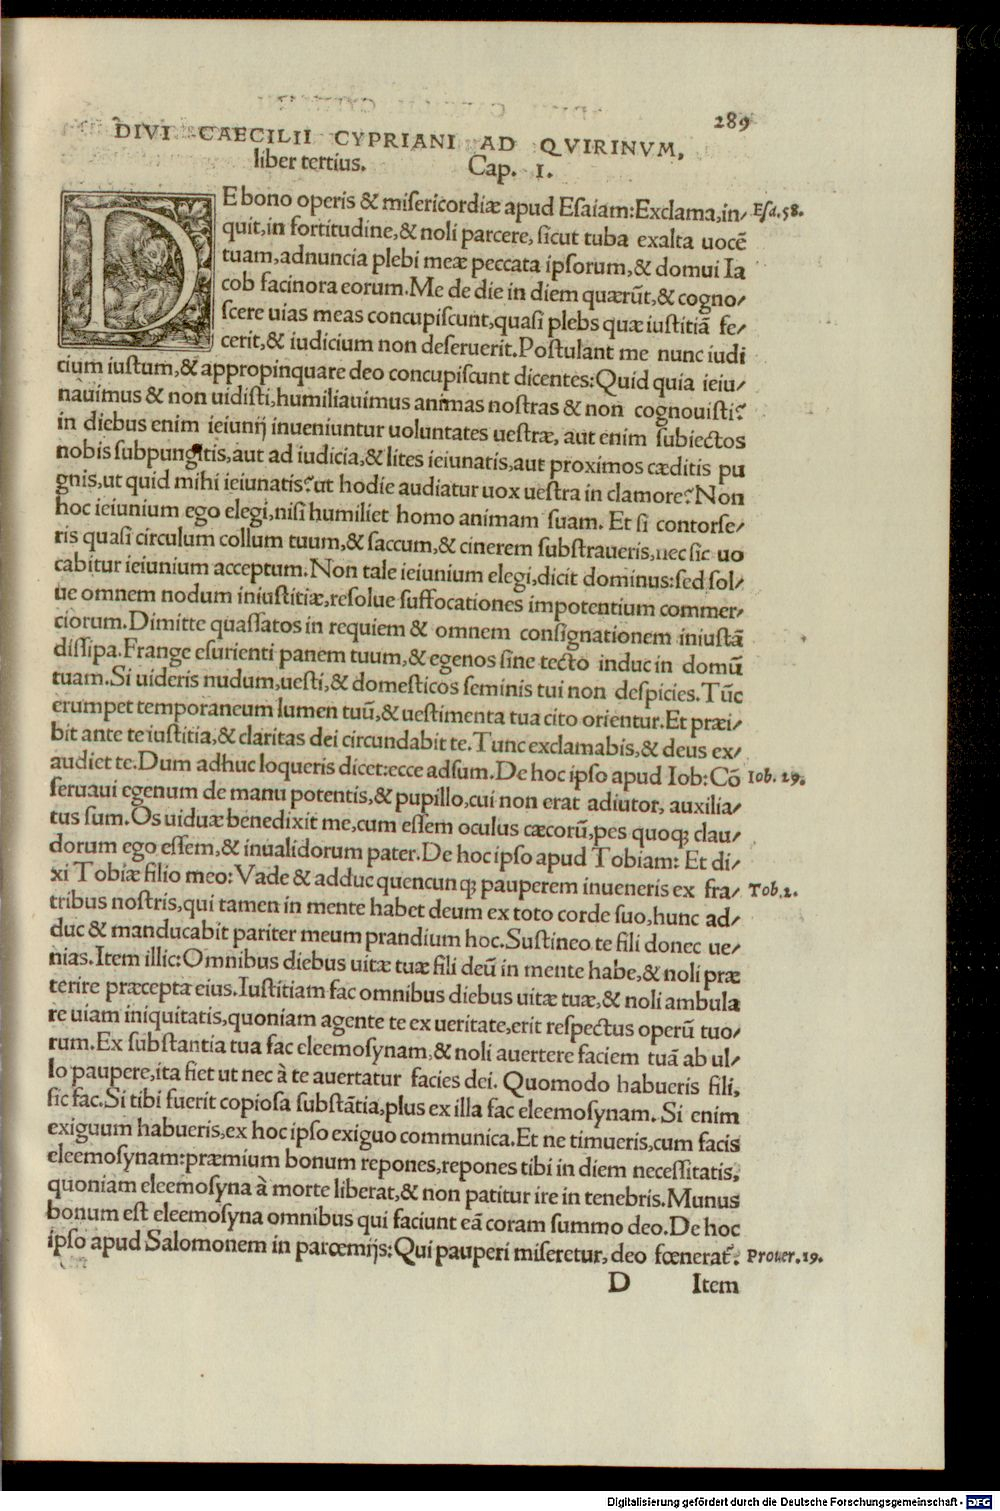 289
DIVI CAECILII CYPRIANI AD QVIRINVM,
liber tertius. Cap. I.
DE bono operis & miſericordiæ apud Eſaiam: Exclama, in⸗ Eſa. 58.
quit, in fortitudine, & noli parcere, ſicut tuba exalta uocẽ
tuam, adnuncia plebi meæ peccata ipſorum, & domui Ia
cob facinora eorum. Me de die in diem quærũt, & cogno⸗
ſcere uias meas concupiſcunt, quaſi plebs quæ iuſtitiã fe⸗
cerit, & iudicium non deſeruerit. Poſtulant me nunc iudi
cium iuſtum, & appropinquare deo concupiſcunt dicentes: Quid quia ieiu⸗
nauimus & non uidiſti, humiliauimus animas noſtras & non cognouiſti?
in diebus enim ieiunij inueniuntur uoluntates ueſtræ, aut enim ſubiectos
nobis ſubpungitis, aut ad iudicia, & lites ieiunatis, aut proximos cæditis pu
gnis, ut quid mihi ieiunatis? ut hodie audiatur uox ueſtra in clamore? Non
hoc ieiunium ego elegi, niſi humiliet homo animam ſuam. Et ſi contorſe⸗
ris quaſi circulum collum tuum, & ſaccum, & cinerem ſubſtraueris, nec ſic uo
cabitur ieiunium acceptum. Non tale ieiunium elegi, dicit dominus: ſed ſol⸗
ue omnem nodum iniuſtitiæ, reſolue ſuffocationes impotentium commer⸗
ciorum. Dimitte quaſſatos in requiem & omnem conſignationem iniuſtã
diſſipa. Frange eſurienti panem tuum, & egenos ſine tecto induc in domũ
tuam. Si uideris nudum, ueſti, & domeſticos ſeminis tui non deſpicies. Tũc
erumpet temporaneum lumen tuũ, & ueſtimenta tua cito orientur. Et præi⸗
bit ante te iuſtitia, & claritas dei circundabit te. Tunc exclamabis, & deus ex⸗
audiet te. Dum adhuc loqueris dicet: ecce adſum. De hoc ipſo apud Iob: Cõ Iob. 29.
ſeruaui egenum de manu potentis, & pupillo, cui non erat adiutor, auxilia⸗
tus ſum. Os uiduæ benedixit me, cum eſſem oculus cæcorũ, pes quoqꝫ clau⸗
dorum ego eſſem, & inualidorum pater. De hoc ipſo apud Tobiam: Et di⸗
xi Tobiæ filio meo: Vade & adduc quencunqꝫ pauperem inueneris ex fra⸗ Tob. 2.
tribus noſtris, qui tamen in mente habet deum ex toto corde ſuo, hunc ad⸗
duc & manducabit pariter meum prandium hoc. Suſtineo te fili donec ue⸗
nias. Item illic: Omnibus diebus uitæ tuæ fili deũ in mente habe, & noli præ
terire præcepta eius. Iuſtitiam fac omnibus diebus uitæ tuæ, & noli ambula
re uiam iniquitatis, quoniam agente te ex ueritate, erit reſpectus operũ tuo⸗
rum. Ex ſubſtantia tua fac eleemoſynam, & noli auertere faciem tuã ab ul⸗
lo paupere, ita fiet ut nec à te auertatur facies dei. Quomodo habueris fili,
ſic fac. Si tibi fuerit copioſa ſubſtãtia, plus ex illa fac eleemoſynam. Si enim
exiguum habueris, ex hoc ipſo exiguo communica. Et ne timueris, cum facis
eleemoſynam: præmium bonum repones, repones tibi in diem neceſſitatis,
quoniam eleemoſyna à morte liberat, & non patitur ire in tenebris. Munus
bonum eſt eleemoſyna omnibus qui faciunt eã coram ſummo deo. De hoc
ipſo apud Salomonem in parœmijs: Qui pauperi miſeretur, deo fœnerat᷑. Prouer. 19.
D Item
Digitalisierung gefördert durch die Deutsche Forschungsgemeinschaft - DFG